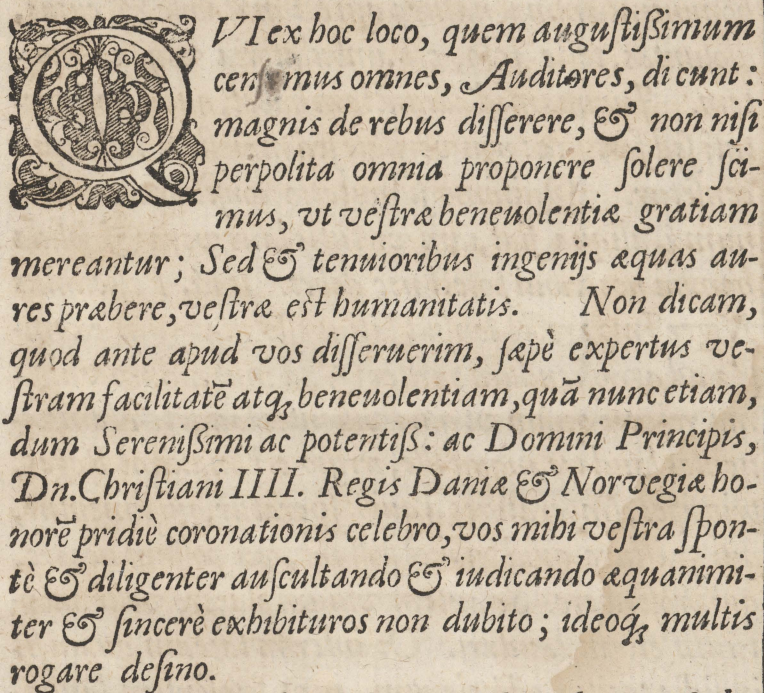 QVI ex hoc loco, quem augustißimum
censemus omnes, Auditores, dicunt:
magnis de rebus disserere, & non nisi
perpolita omnia proponere solere sci-
mus, vt vestræ beneuolentiæ gratiam
mereantur; Sed & tenuioribus ingenijs æquas au-
res præbere, vestræ est humanitatis. Non dicam,
quod ante apud vos disseruerim, sæpè expertus ve-
stram facilitatē atq; beneuolentiam, quā nunc etiam,
dum Serenißimi ac potentiß: ac Domini Principis,
Dn. Christiani IIII. Regis Daniæ & Norvegiæ ho-
norē pridiè coronationis celebro, vos mihi vestra spon-
tè & diligenter auscultando & iudicando æquanimi-
ter & sincerè exhibituros non dubito; ideoq́; multis
rogare desino.